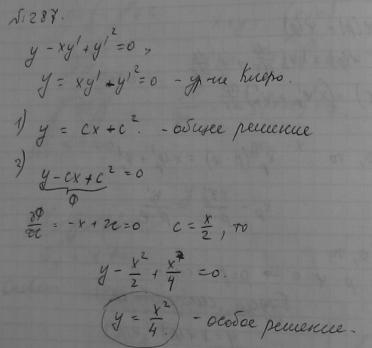 №287.
y - xy' + y'² = 0,
y = xy' - y'² = 0 - ур-ие Клеро.
1) y = cx + c². - общее решение
2) y - cx + c² = 0
Φ
∂Φ/∂c = -x + 2c = 0 c = x/2, то
y - x²/2 + x²/4 = 0.
y = x²/4 - особое решение.